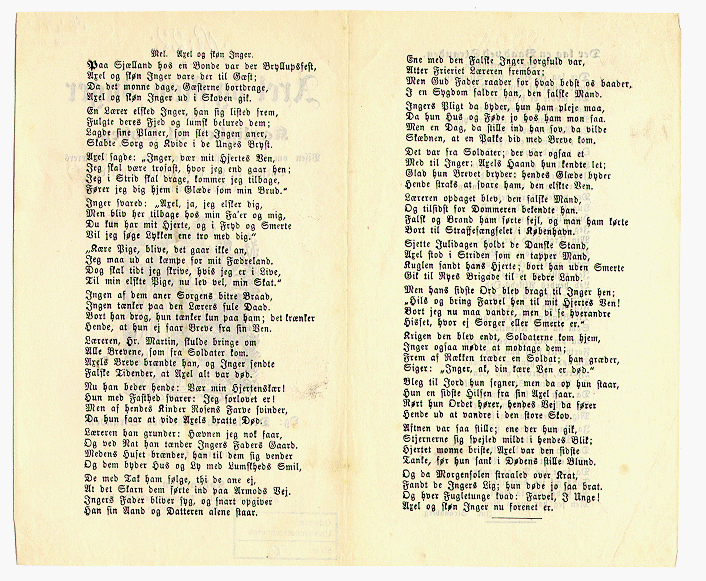 Mel. Axel og skøn Inger.
Paa Sjælland hos en Bonde var der Bryllupsfest,
Axel og skøn Inger vare der til Gæst;
Da det monne dage, Gæsterne bortdrage,
Axel og skøn Inger ud i Skoven gik.
En Lærer elsked Inger, han sig listed frem,
Fulgte deres Fjed og lumsk belured dem;
Lagde sine Planer, som slet Ingen aner,
Skabte Sorg og Kvide i de Unges Bryst.
Axel sagde: „Inger, vær mit Hjertes Ven,
Jeg skal være trofast, hvor jeg end gaar hen;
Jeg i Strid skal drage, kommer jeg tilbage,
Fører jeg dig hjem i Glæde som min Brud.“
Inger svared: „Axel, ja, jeg elsker dig,
Men bliv her tilbage hos min Fa'er og mig,
Du kan har mit Hjerte, og i Fryd og Smerte
Vil jeg søge Lykken ene tro med dig.“
„Kære Pige, blive, det gaar ikke an,
Jeg maa ud at kæmpe for mit Fædreland.
Dog skal tidt jeg skrive, hvis jeg er i Live,
Til min elskte Pige, nu lev vel, min Skat.“
Ingen af dem aner Sorgens bitre Braad,
Ingen tænker paa den Lærers fule Daad.
Bort han drog, hun tænker kun paa ham; det krænker
Hende, at hun ej faar Breve fra sin Ven.
Læreren, Hr. Martin, skulde bringe om
Alle Brevene, som fra Soldater kom.
Axels Breve brændte han, og Inger sendte
Falske Tidender, at Axel alt var død.
Nu han beder hende: Vær min Hjertenskær!
Hun med Fasthed svarer: Jeg forlovet er!
Men af hendes Kinder Rosens Farve svinder,
Da hun faar at vide Axels bratte Død.
Læreren han grunder: Hævnen jeg nok faar,
Og ved Nat han tænder Ingers Faders Gaard.
Medens Huset brænder, han til dem sig vender
Og dem byder Hus og Ly med Lumskheds Smil,
De med Tak ham følge, thi de ane ej,
At det Skarn dem førte ind paa Armods Vej.
Ingers Fader bliver syg, og snart opgiver
Han sin Aand og Datteren alene staar.
Ene med den Falske Inger sorgfuld var,
Atter Frieriet Læreren frembar;
Men Gud Fader raader for hvad bedst os baader,
I en Sygdom falder han, den falske Mand.
Ingers Pligt da byder, hun ham pleje maa,
Da hun Hus og Føde jo hos ham mon faa.
Men en Dag, da stille ind han sov, da vilde
Skæbnen, at en Pakke did med Breve kom.
Det var fra Soldater; der var ogsaa et
Med til Inger; Axels Haand hun kendte let;
Glad hun Brevet bryder; hendes Glæde byder
Hende straks at svare ham, den elskte Ven.
Læreren opdaget blev, den falske Mand,
Og tilsidst for Dommeren bekendte han.
Falsk og Brand ham førte fejl, og man ham kørte
Bort til Straffefængselet i København.
Sjette Julidagen holdt de Danske Stand,
Axel stod i Striden som en tapper Mand,
Kuglen fandt hans Hjerte; bort han uden Smerte
Gik til Ryes Brigade til et bedre Land.
Men hans sidste Ord blev bragt til Inger hen;
„Hils og bring Farvel hen til mit Hjertes Ven!
Bort jeg nu maa vandre, men vi se hverandre
Hisset, hvor ej Sorger eller Smerte er.“
Krigen den blev endt, Soldaterne kom hjem,
Inger ogsaa mødte at modtage dem;
Frem af Rækken træder en Soldat; han græder,
Siger: „Inger, ak, din kære Ven er død.“
Bleg til Jord hun segner, men da op hun staar,
Hun en sidste Hilsen fra sin Axel faar.
Rørt hun Ordet hører, hendes Vej da fører
Hende ud at vandre i den store Skov.
Aftnen var saa stille; ene der hun gik,
Stjernerne sig spejled mildt i hendes Blik;
Hjertet monne briste, Axel var den sidste
Tanke, før hun sank i Dødens stille Blund.
Og da Morgensolen straaled over Krat,
Fandt de Ingers Lig; hun døde jo saa brat.
Og hver Fugletunge kvad: Farvel, I Unge!
Axel og skøn Inger nu forenet er.